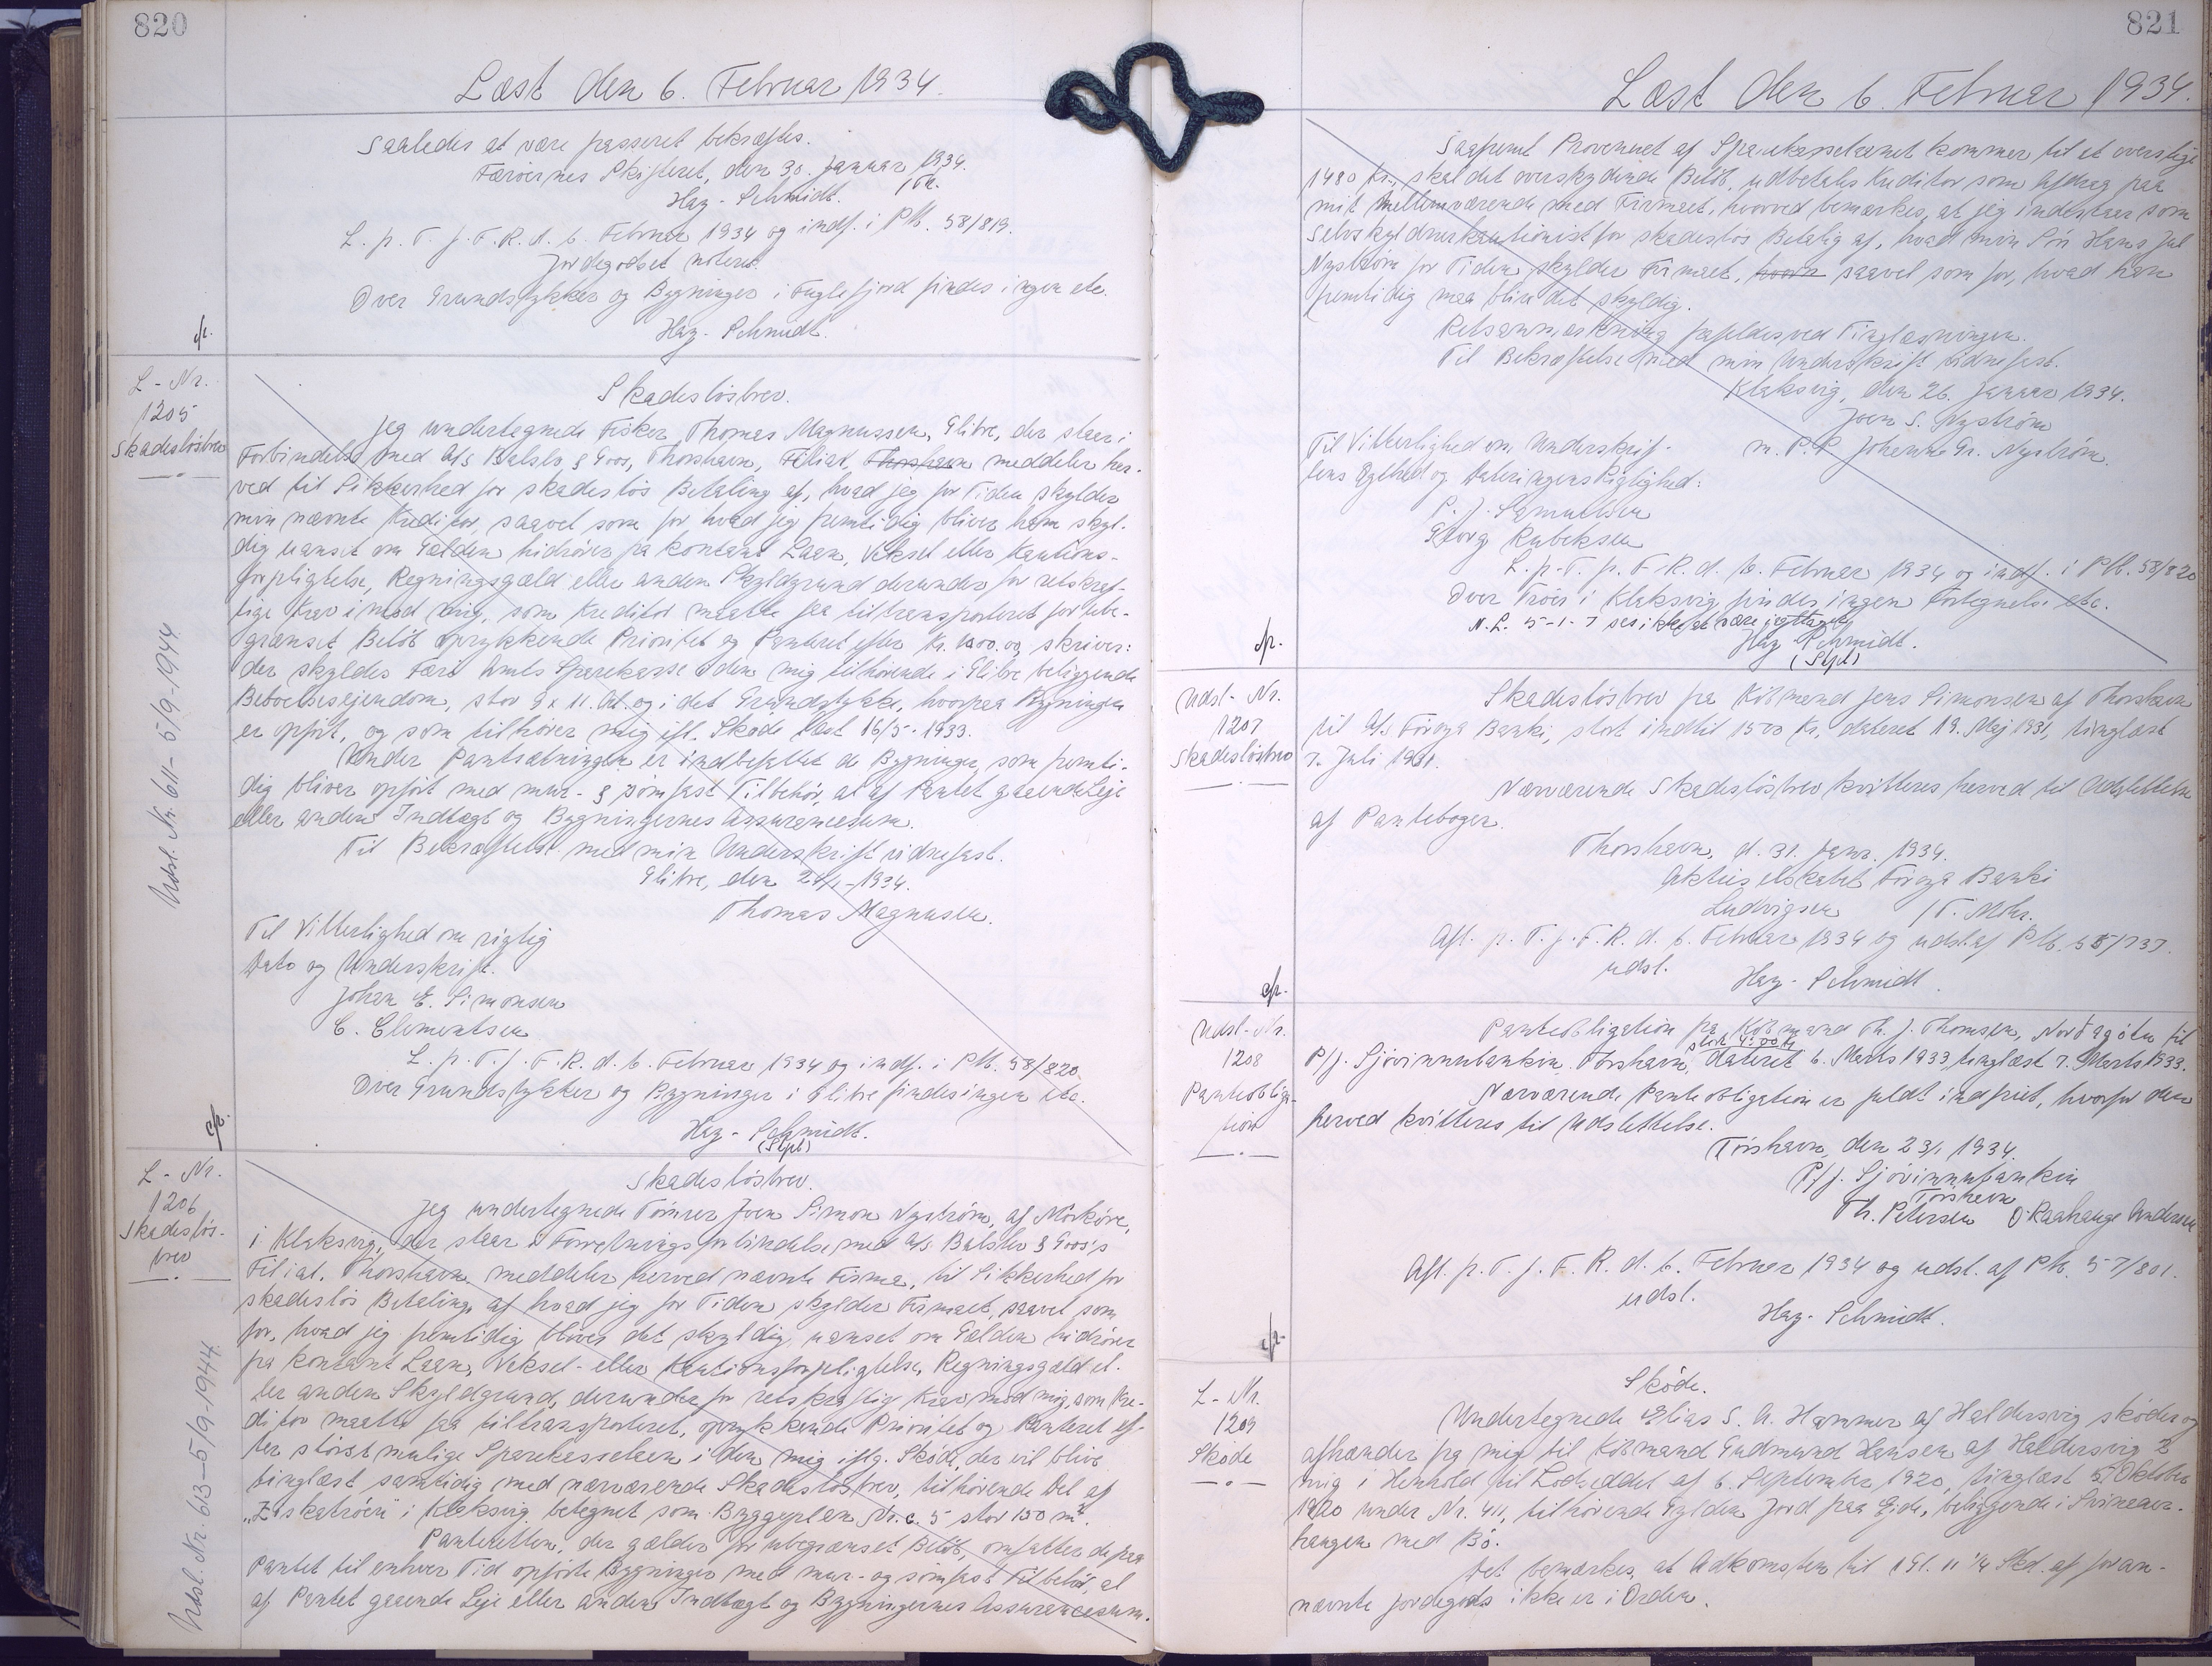 820
Læst den 6. Februar 1934.
Saaledes at være passeret bekræftes.
Færøernes Skifteret, den 30. Januar 1934.
Hag-Schmidt.
L. p. T. f. F. R. d. 6. Februar 1934 og indf. i Pb. 58/819.
Jordegodset noteret.
Over Grundstykker og Bygninger i Fuglefjord findes ingen etc.
Hag-Schmidt.
L-Nr.
1205
Skadesløsbrev
Udsl. Nr. 611-5/9-1944
Skadesløsbrev.
Jeg undertegnede Fisker Thomas Magnussen, Glibre, der staar i
Forbindelse med A/S Balslev & Goos, Thorshavn, Filial, Thorshavn meddeler her-
ved til Sikkerhed for skadesløs Betaling af, hvad jeg for Tiden skylder
min nævnte Kreditor, saavel som for hvad jeg fremtidig bliver ham skyl-
dig uanset om Gælden hidrører fra kontant Laan, Veksel eller Kautions-
forpligtelse, Regningsgæld eller anden Skyldgrund derunder for retskraf-
tige Krav imod mig, som Kreditor maatte faa tiltransporteret for ube-
grænset Beløb oprykkende Prioritet og Panteret efter Kr. 1000.00, skriver:
der skyldes Færø Amts Sparekasse i den mig tilhørende i Glibre beliggende
Beboelsesejendom, stor 9 x 11 Al. og i det Grundstykke, hvorpaa Bygningen
er opført, og som tilhører mig ifl. Skøde læst 16/5-1933.
Under Pantsætningen er indbefattet de Bygninger, som fremti-
dig bliver opført med mur- & sømfast Tilbehør, al af Pantet gaaende Leje
eller anden Indtægt og Bygningernes Assurancesum.
Til Bekræftelse med min Underskrift vidnefast.
Glibre, den 24/1-1934.
Thomas Magnusen.
Til Vitterlighed om rigtig
Dato og Underskrift.
Johan E. Simonsen
C. Clementsen
L. p. T. f. F. R. d. 6. Februar 1934 og indf. i Pb. 58/820.
Over Grundstykker og Bygninger i Glibre findes ingen etc.
Hag-Schmidt.
(Stpl)
L-Nr.
1206
Skadesløs-
brev
Udsl. Nr. 613-5/9-1944.
Skadesløsbrev.
Jeg undertegnede Tømrer Joen Simon Nystrøm, af Mörköre,
i Klaksvig, der staar i Forretningsforbindelse med A/S. Balslev & Goos's
Filial. Thorshavn meddeler herved nævnte Firma, til Sikkerhed for
skadesløs Betaling af hvad jeg for Tiden skylder Firmaet, saavel som
for, hvad jeg fremtidig bliver det skyldig, uanset om Gælden hidrører
fra kontant Laan, Veksel- eller Kautionsforpligtelse, Regningsgæld el-
ler anden Skyldgrund, derunder for retskraftig Krav mod mig, som Kre-
ditor maatte faa tiltransporteret, oprykkende Prioritet og Panteret ef-
ter størst mulige Sparekasselaan i den mig iflg. Skøde, der vil blive
tinglæst samtidig med nærværende Skadesløsbrev, tilhørende Del af
i Klaksvig betegnet som Byggeplan Nr. c. 5 stor 150 m².
Panteretten, der gælder for ubegrænset Beløb, omfatter de paa
Pantet til enhver Tid opførte Bygninger med mur- og sømfast Tilbehør, al
af Pantet gaaende Leje eller anden Indtægt og Bygningernes Assurancesum.
821
Læst den 6. Februar 1934.
Saafremt Provenuet af Sparekasselaanet kommer til at overstige
1480 Kr., skal det overskydende Beløb, udbetales Kreditor som Afdrag paa
mit Mellemværende med Firmaet, hvorved bemærkes, at jeg indestaar som
Selvskyldnerkautionist for skadesløs Betalig af, hvad min Søn Hans Jul
Nystrøm for Tiden skylder Firmaet, hvorn saavel som for, hvad han
fremtidig maa blive det skyldig.
Retsanmærkning frafaldes ved Tinglæsningen.
Til Bekræftelse med min Underskrift vidnefast.
Klaksvig, den 26. Januar 1934.
Joen S. Nystrøm
m. P. P. Johanna Gr. Nystrøm.
Til Vitterlighed om Underskrif-
tens Ægthed og Dateringens Rigtighed:
P. J. Samuelsen
Georg Rubeksen
L. p. T. f. F. R. d. 6. Februar 1934 og indf. i Pb. 58/820
Over Tröir i Klaksvig findes ingen Fortegnelse etc.
N. L. 5-1-7 ses ikke at være iagttaget
Hag-Schmidt.
(Stpl)
Udsl-Nr.
1207
Skadesløsbrev
Skadesløsbrev fra Købmand Jens Simonsen af Thorshavn
til A/S Föroya Banki, stort indtil 1500 Kr, dateret 19. Maj 1931, tinglæst
7. Juli 1931.
Nærværende Skadesløsbrev kvitteres herved til Udslettelse
af Pantebogen.
Thorshavn, d. 31. Janr. 1934.
Aktieselskabet Föroya Banki
Ludvigsen /T. Mohr.
Afl. p. T. f. F. R. d. 6. Februar 1934 og udsl. af Pb. 55/737.
udsl.
Hag-Schmidt.
Udsl-Nr.
1208
Panteobliga-
tion
Panteobligation fra Købmand Th. J. Thomsen, Nordagötu til
P/f. Sjóvinnubankin, Tórshavn, dateret 6. Marts 1933, tinglæst 7. Marts 1933.
Nærværende Panteobligation er fuldt indfriet, hvorfor den
herved kvitteres til Udslettelse.
Tórshavn, den 23/1 1934.
P/f. Sjóvinnubankin
Tórshavn
Th. Petersen O. Raahauge Andersen
Afl. p. T. f. F. R. d. 6. Februar 1934 og udsl. af Pb. 57/801.
udsl.
Hag-Schmidt.
L-Nr.
1209
Skøde
Skøde.
Undertegnede Elias S. A. Hammer af Haldersvig skøder og
afhænder fra mig til Købmand Gudmund Hansen af Haldersvig
mig i Henhold til Lodseddel af 6. September 1920, tinglæst 5/Oktober
1920 under Nr. 411, tilhørende Gylden Jord paa Ejde, beliggende i Svineaar-
haugen med Bö.
Det bemærkes, at Adkomsten til 1 Gl. 11 1/4 Skd. af foran-
nævnte Jordegods ikke er i Orden.